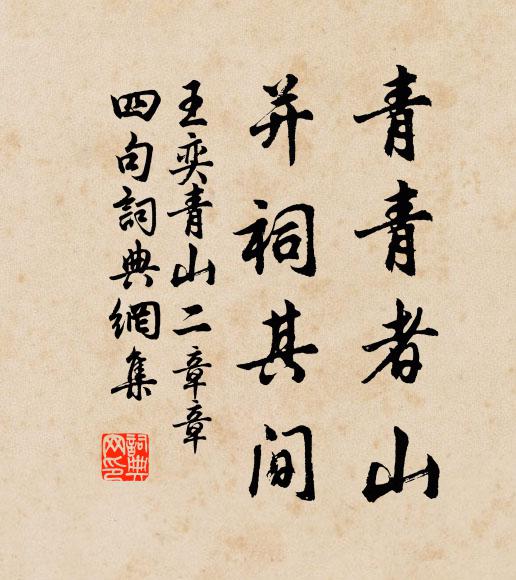 青青者山
并祠其间
王奕青山二章章
四句詞典網集
詞典
网印